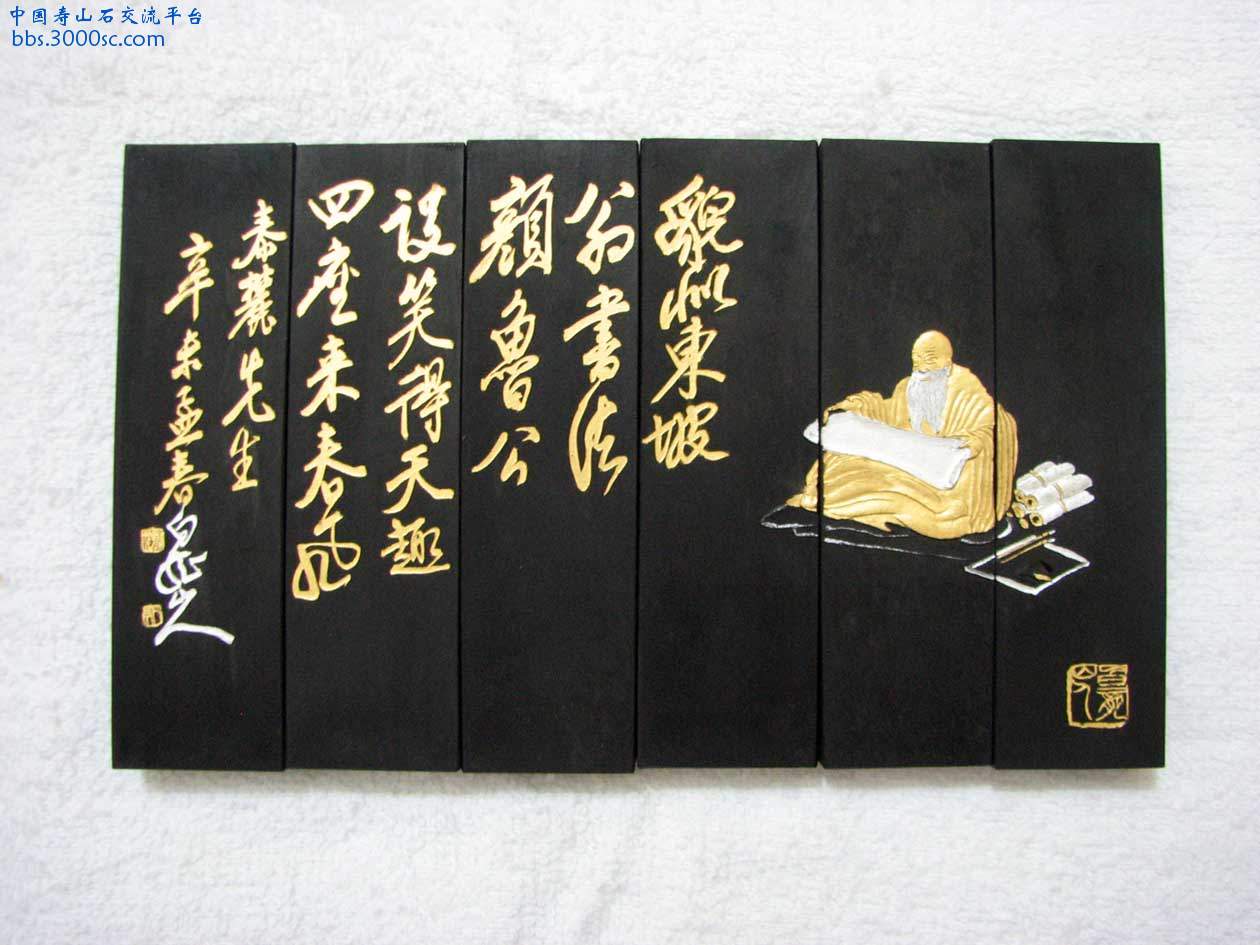 中国寿山石交流平台
bbs.3000sc.com
貌似東坡
翁書法
顏魯公
談笑得天趣
四座来春風
泰麓先生
辛未孟春